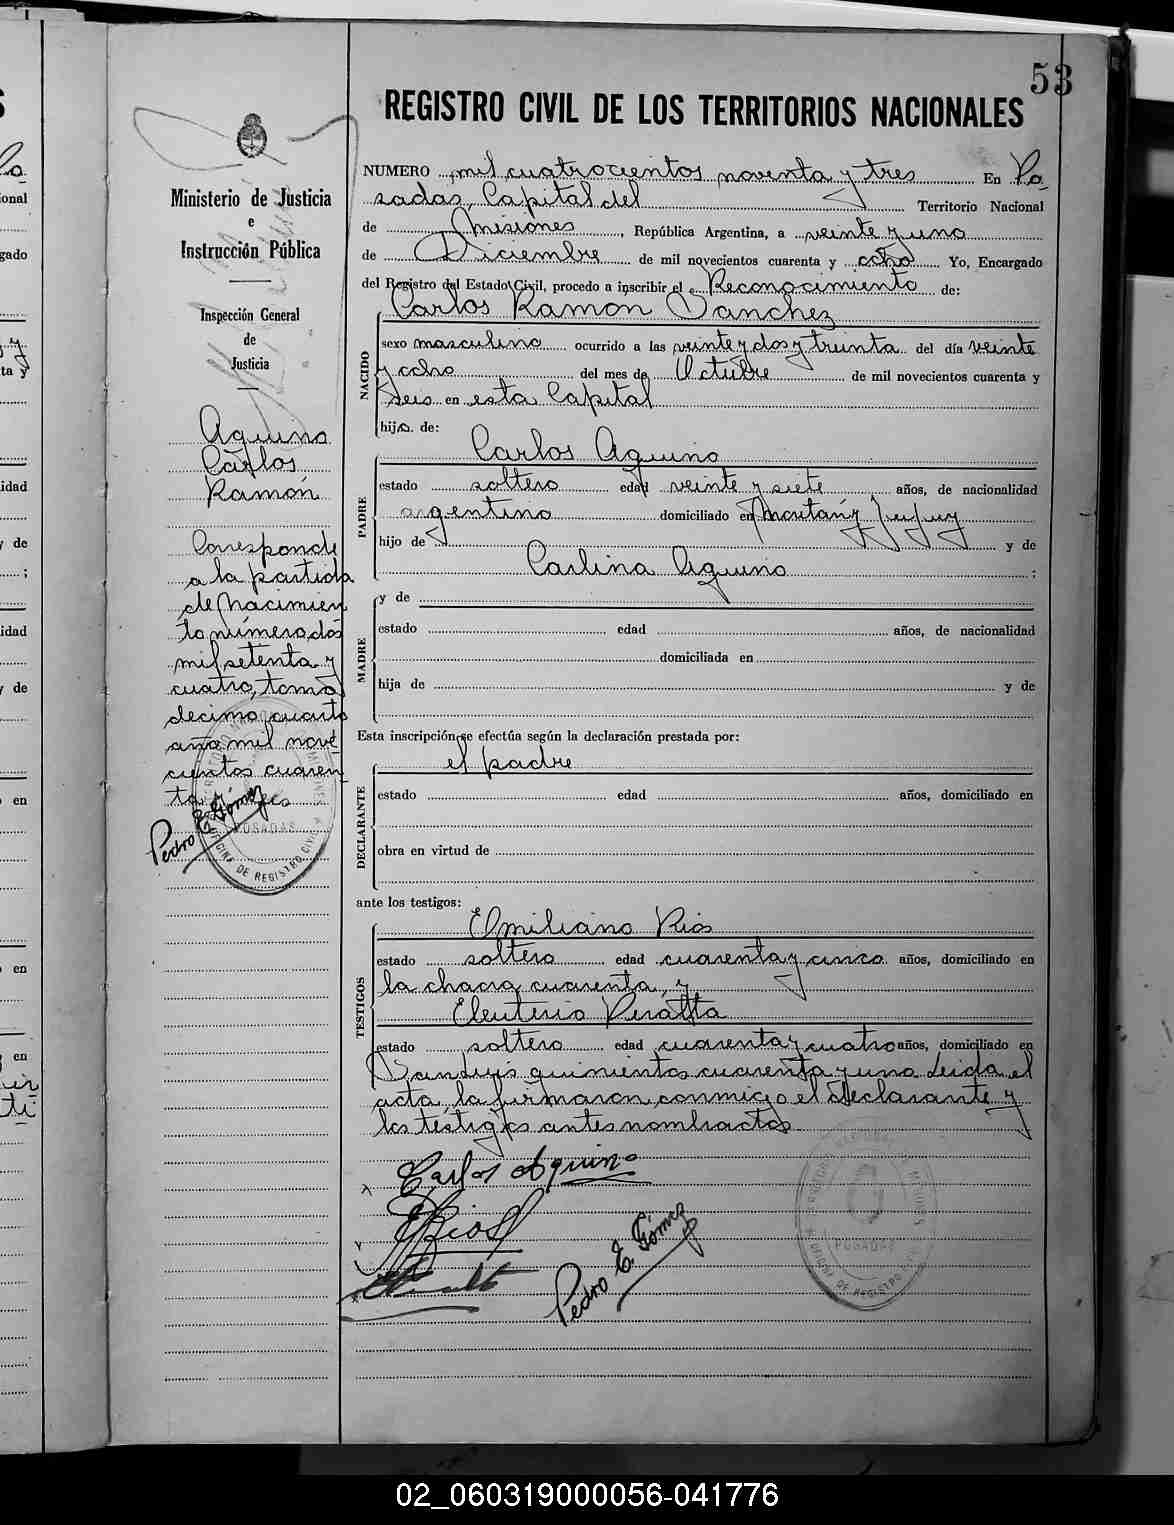 53
REGISTRO CIVIL DE LOS TERRITORIOS NACIONALES
Ministerio de Justicia
e
Instrucción Pública
Inspección General
de
Justicia
Aquino
Carlos
Ramón
Corresponde
a la partida
de nacimien
to número dos
mil setenta y
cuatro, tomo
decimo cuarto
año mil nove
cientos cuaren
ta y seis
Pedro E. Gómez
POSADAS
OFICINA DE REGISTRO CIVIL
NUMERO mil cuatrocientos noventa y tres En Po
sadas, Capital del Territorio Nacional
de Misiones, República Argentina, a veinte y uno
de Diciembre de mil novecientos cuarenta y ocho Yo, Encargado
del Registro del Estado Civil, procedo a inscribir el Reconocimiento de:
Carlos Ramon Sanchez
NACIDO
sexo masculino ocurrido a las veinte y dos y treinta del día veinte
y ocho del mes de Octubre de mil novecientos cuarenta y
seis en esta Capital
hijo de:
Carlos Aquino
PADRE
estado soltero edad veinte y siete años, de nacionalidad
argentino domiciliado en Jujuy
hijo de y de
Carlina Aquino ;
MADRE
y de
estado edad años, de nacionalidad
domiciliada en
hija de y de
Esta inscripción se efectúa según la declaración prestada por:
el padre
DECLARANTE
estado edad años, domiciliado en
obra en virtud de
ante los testigos:
Emiliano Rios
TESTIGOS
estado soltero edad cuarenta y cinco años, domiciliado en
la chacra cuarenta, y
Eleuterio Peralta
estado soltero edad cuarenta y cuatro años, domiciliado en
San Luis quinientos cuarenta y uno. Leida el
acta, la firmaron conmigo el declarante y
los testigos antes nombrados
Carlos Aquino
ERios
Pedro E. Gómez
POSADAS
OFICINA DE REGISTRO CIVIL
02_060319000056-041776